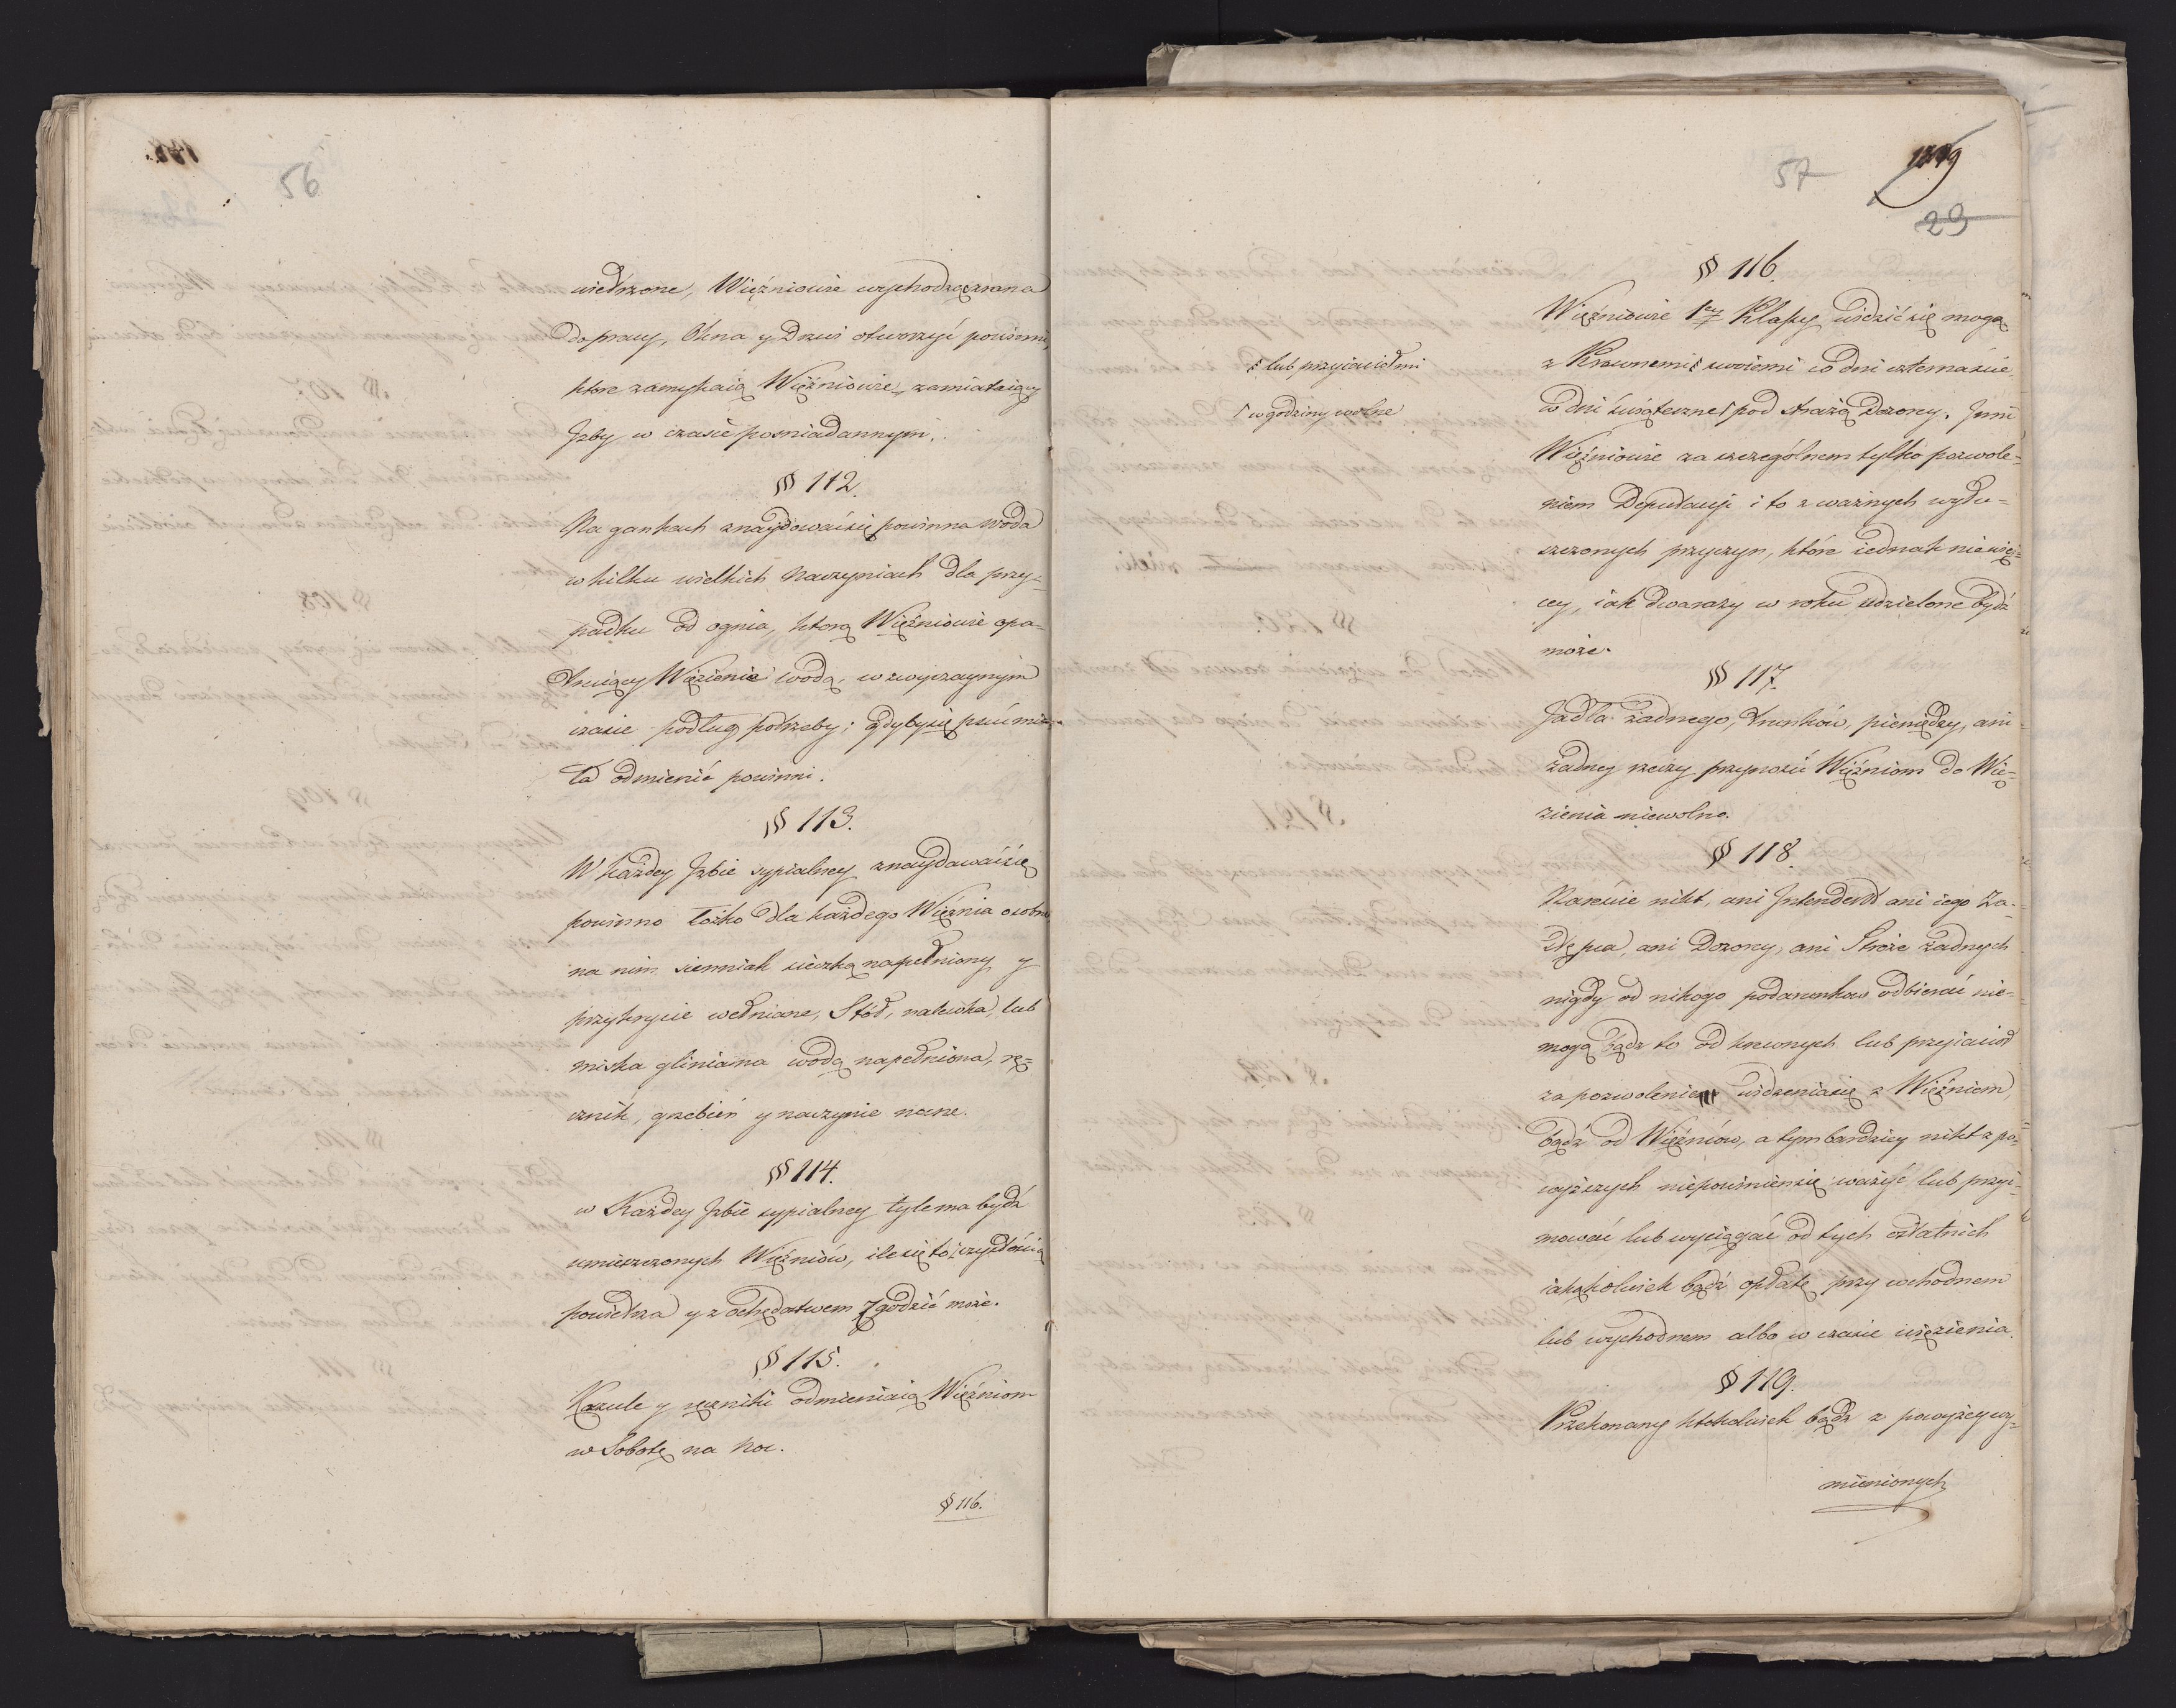 56
wietrzone, Więźniowie wychodząc zrana
do pracy, Okna y Drzwi otworzyć powinni,
ktore zamykaią Więźniowie, zamiataiący
Jzby w czasie posniadannym.
§ 112.
Na gankach znaydować się powinna Woda
w kilku wielkich Naczyniach dla przy=
padku od ognia, ktorą Więźniowie opa=
truiący Więzienie wodą, w zwyczaynym
czasie podług potrzeby; gdyby się psuć mia=
ła odmienić powinni.
§ 113.
W każdey Jzbie sypialney znaydować się
powinno łożko dla każdego Więźnia osobne
na nim siennik sieczką napełniony y
przykrycie wełniane, Stół, nalewka, lub
miska gliniana wodą napełniona, rę=
cznik, grzebień y naczynie nocne.
§ 114.
w Każdey Jzbie sypialney tyle ma bydź
umieszczonych Więźniów, ile się to z czystością
powietrza y z ochędostwem zgodzić może.
§ 115.
Koszule y ręczniki odmieniaią Więźniom
w Sobotę na Noc.
§ 116.
57
29
§ 116.
Więźniowie 1ey Klassy widzić się mogą
z Krewnemi swoiemi co dni czternaście,
lub przyiaciołmi
w dni świąteczne pod strażą Dozorcy. Jnni
w godziny wolne
Więźniowie za szczególnem tylko pozwole=
niem Deputacyi i to z ważnych wyłu=
szczonych przyczyn, które iednak nie wię=
cey, iak dwa razy w roku udzielone bydź
może.
§ 117.
Jadła żadnego, Trunków, pieniędzy, ani
żadney rzeczy przynosić Więźniom do Wię=
zienia niewolno.
§ 118.
Nareście nikt, ani Jntendent ani iego Za=
stępca, ani Dozorcy, ani Stróże żadnych
nigdy od nikogo podarunkow odbierać nie=
mogą bądz to od krewnych lub przyiacioł
za pozwoleniem widzenia się z Więźniem,
bądź od Więźniów, a tym bardziey nikt z po=
wyższych niepowinien się ważyć lub przyi=
mować lub wyciągać od tych ostatnich
iakąkolwiek bądź opłatę przy wchodnem
lub wychodnem albo w czasie więzienia.
§ 119.
Przekonany ktokolwiek bądz z powyżey wy=
mienionych